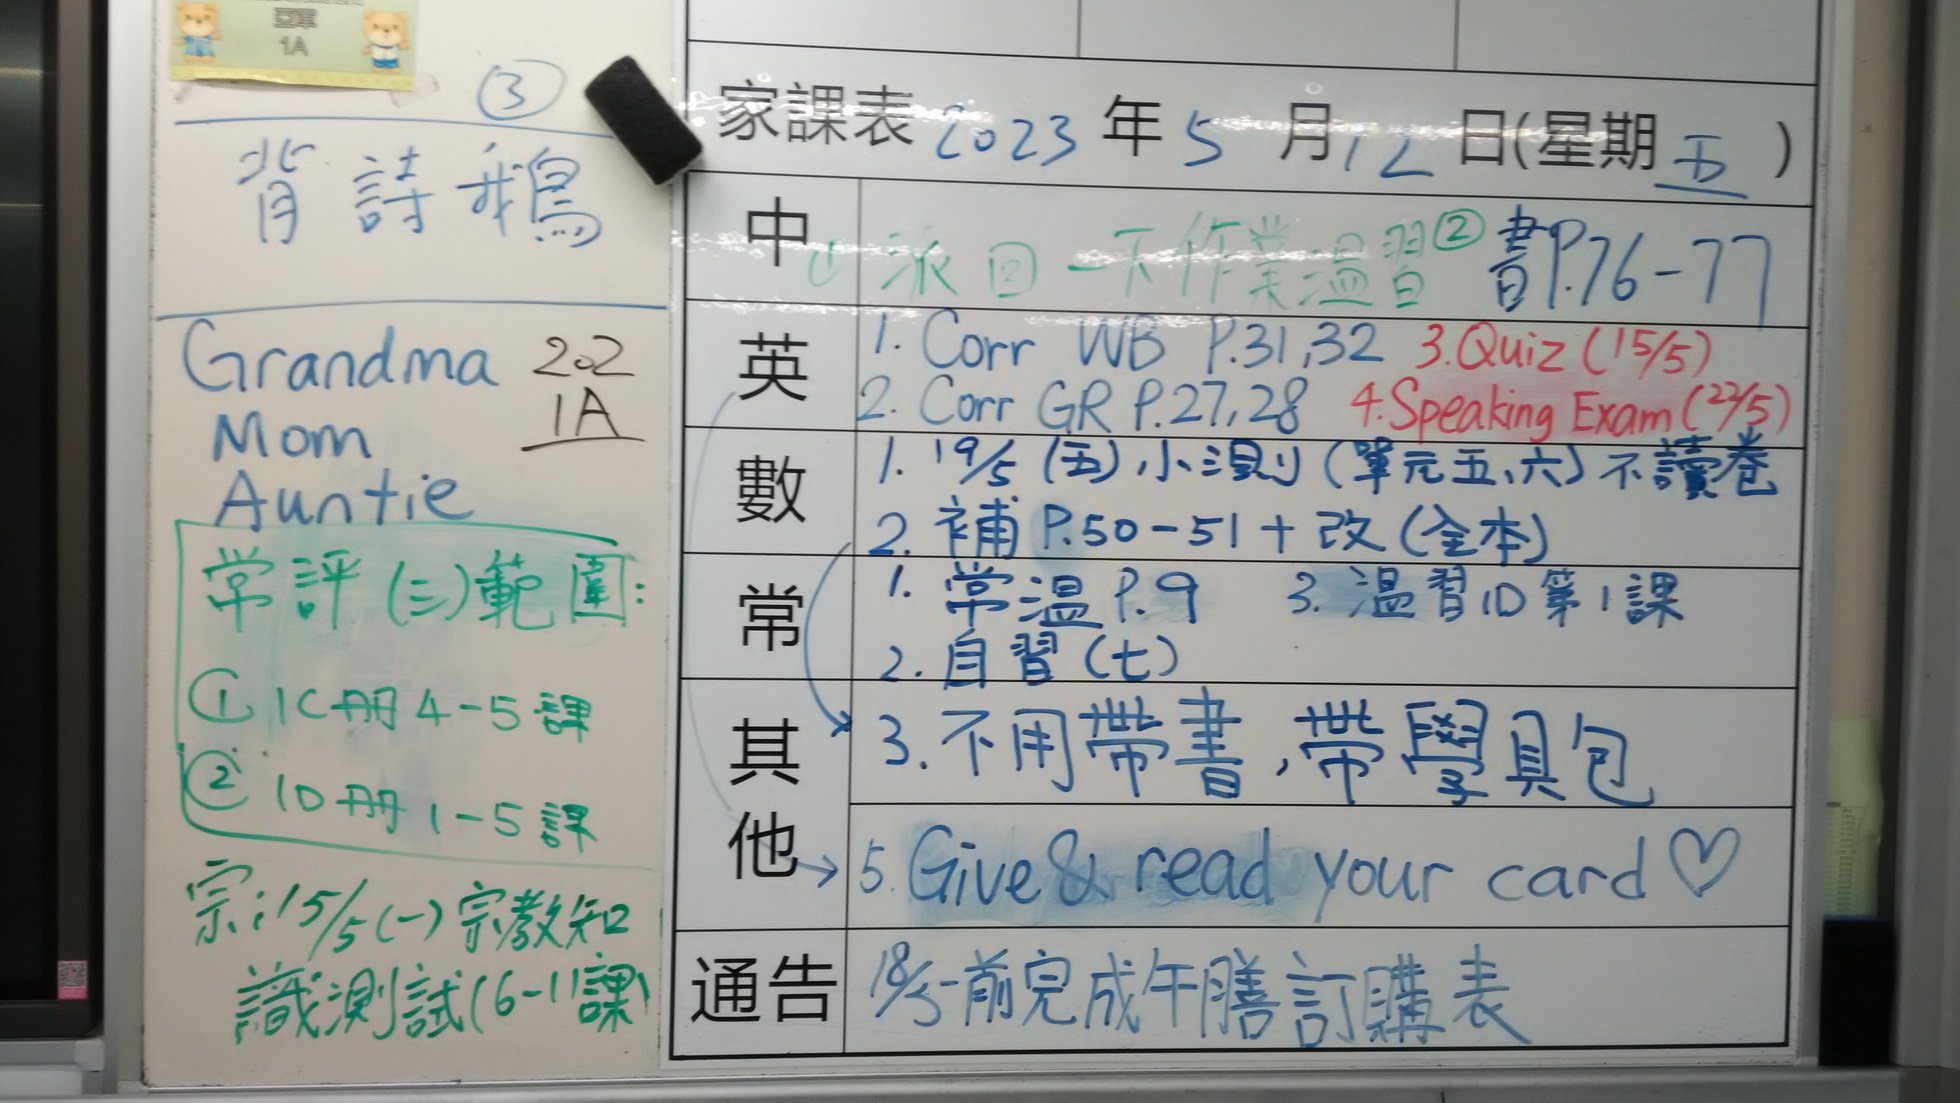 亞軍
1A
③
背 詩 鵝
Grandma
Mom
Auntie
202
1A
常評(三)範圍:
① 1C冊 4-5課
② 1D冊 1-5課
宗:15/5(一)宗教知
識測試(6-11課)
家課表 2023 年 5 月 12 日(星期 五 )
中
① 派回一下作業温習 ② 書P.76-77
英
1. Corr WB P.31,32 3.Quiz (15/5)
2. Corr GR P.27,28 4.Speaking Exam (22/5)
數
1. 19/5 (五) 小測 (單元五、六) 不讀卷
2. 補 P.50-51+改(全本)
常
1. 常温 P.9 3. 温習1D第1課
2. 自習(七)
其他
3. 不用帶書,帶學具包
5. Give & read your card ♡
通告
18/5前完成午膳訂購表